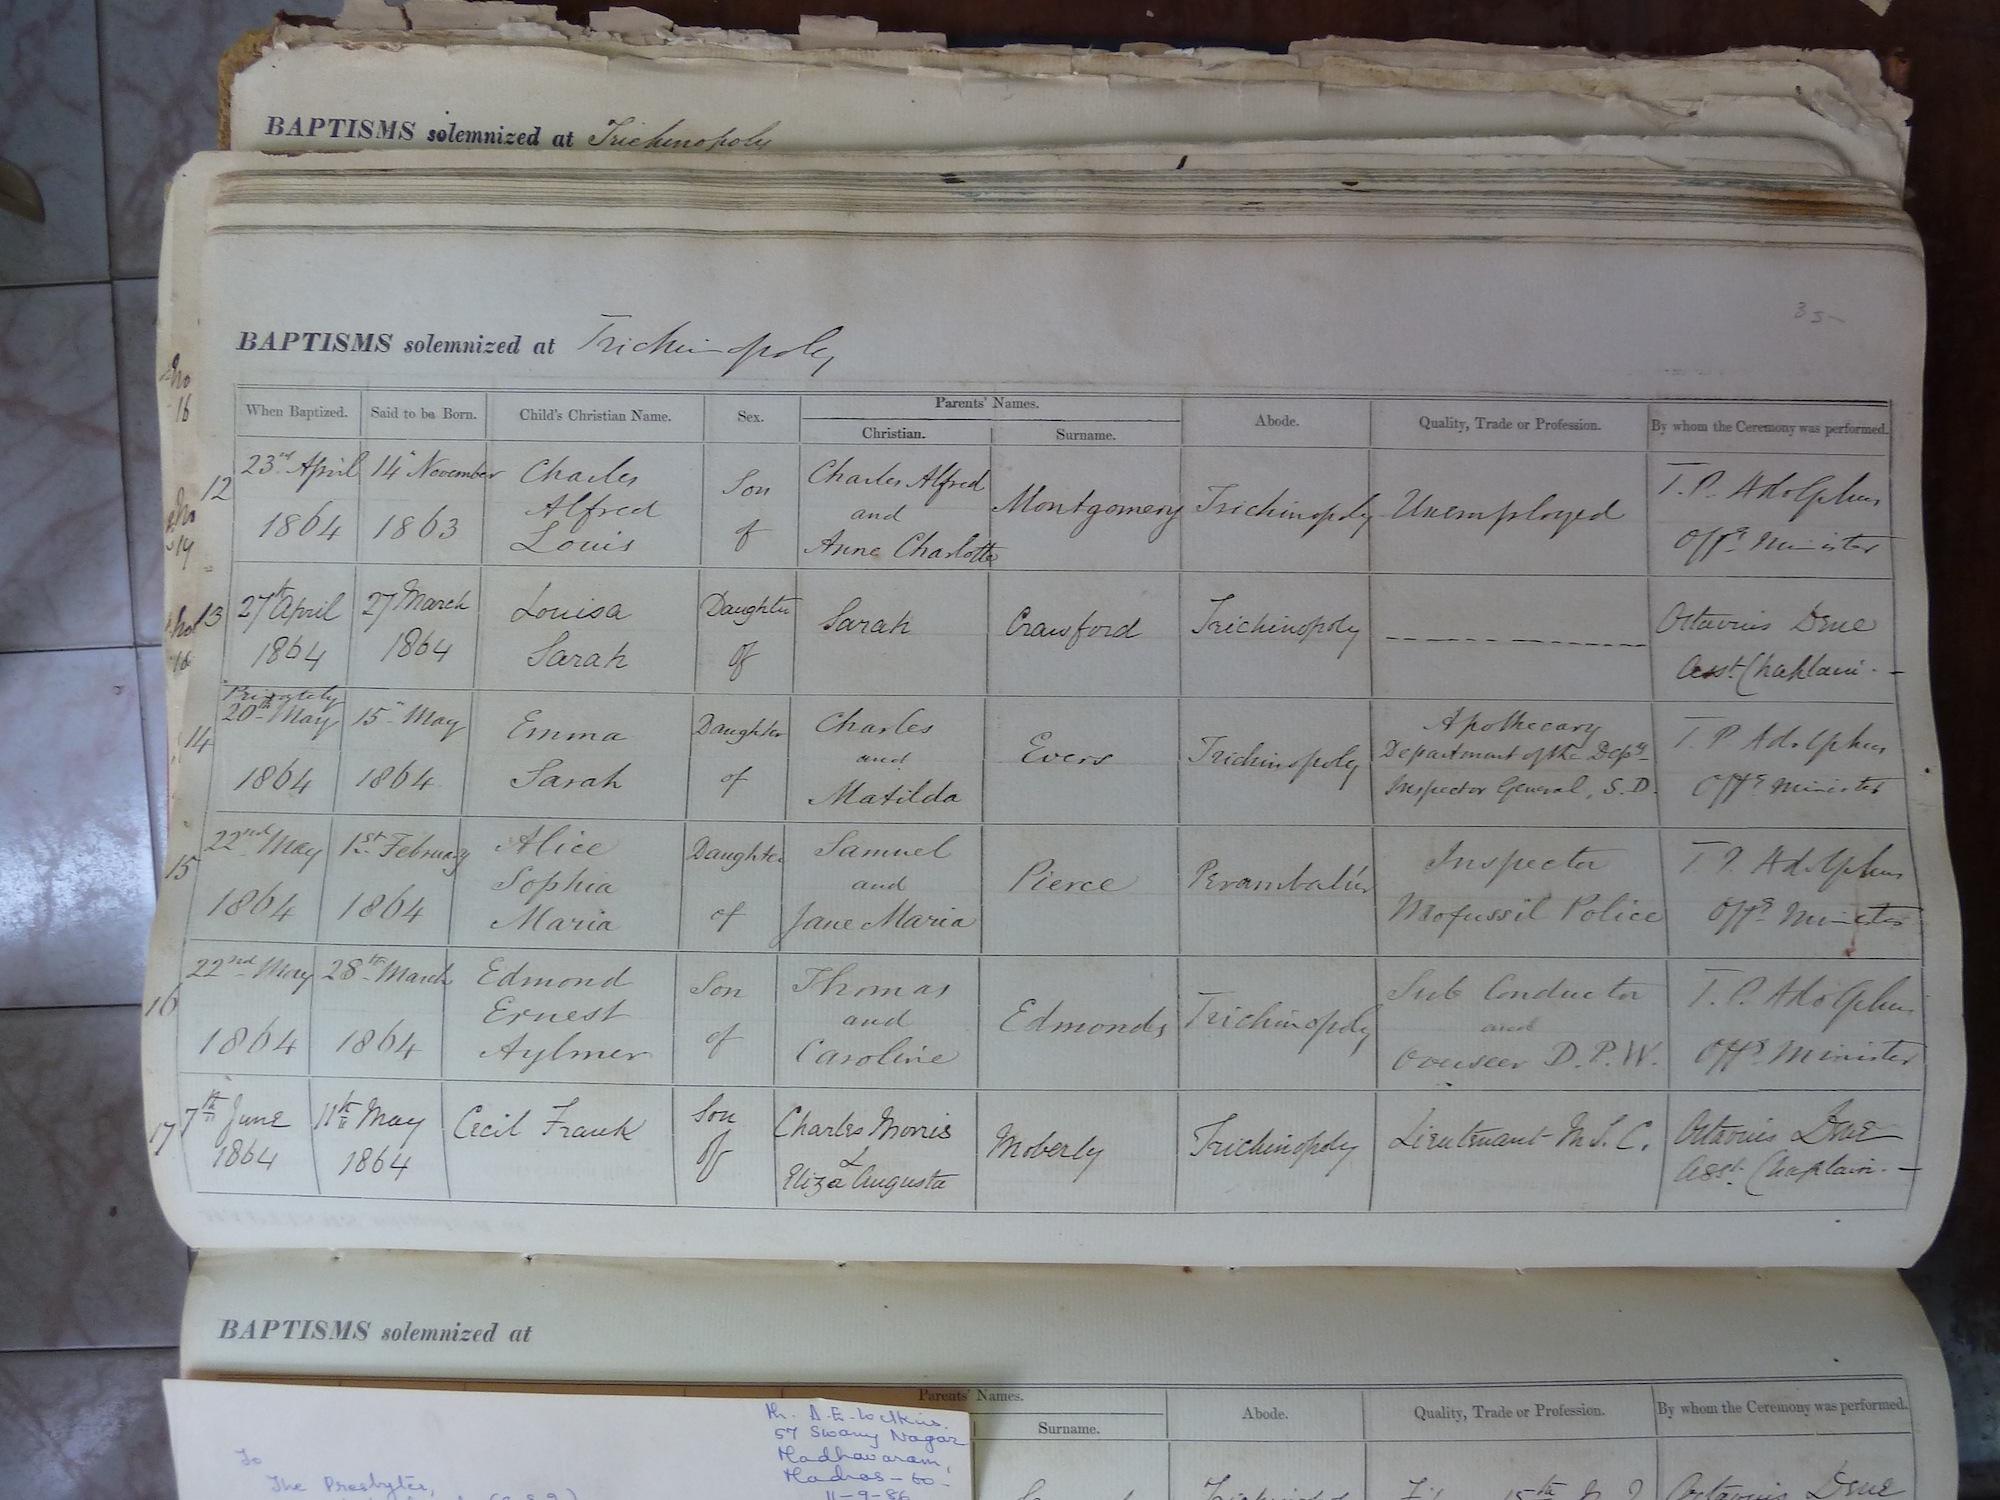 BAPTISMS solemnized at Trichinopoly
35
BAPTISMS solemnized at Trichinopoly
When Baptized. Said to be Born. Child's Christian Name. Sex. Parents' Names. Christian. Surname. Abode. Quality, Trade or Profession. By whom the Ceremony was performed.
No
16
12 23rd April 14" November Charles Son Charles Alfred Montgomery Trichinopoly Unemployed T. P. Adolphus
1864 1863 Alfred of and Offg. Minister
Louis Anne Charlotte
No
13 27th April 27 March Louisa Daughter Sarah Crawford Trichinopoly ------------ Octavius Dene
1864 1864 Sarah of Asst. Chaplain. -
Privately
14 20th May 15" May Emma Daughter Charles Evers Trichinopoly Apothecary T. P. Adolphus
1864 1864 Sarah of and Department of the Depy. Offg. Minister
Matilda Inspector General, S. D.
15 22nd May 1st February Alice Daughter Samuel Pierce Perambalúr Inspector T. P. Adolphus
1864 1864 Sophia of and Mofussil Police Offg. Minister
Maria Jane Maria
16 22nd May 28th March Edmond Son Thomas Edmonds Trichinopoly Sub Conductor T. P. Adolphus
1864 1864 Ernest of and and Offg. Minister
Aylmer Caroline Overseer D. P. W.
17 7th June 11th May Cecil Frank Son Charles Morris Moberly Trichinopoly Lieutenant M. S. C. Octavius Dene
1864 1864 of & Asst. Chaplain. -
Eliza Augusta
BAPTISMS solemnized at
Parents' Names.
Surname. Abode. Quality, Trade or Profession. By whom the Ceremony was performed.
Octavius Dene
57 Swamy Nagar
Madhavaram,
Madras - 60
11-9-86
To
The Presbyter,